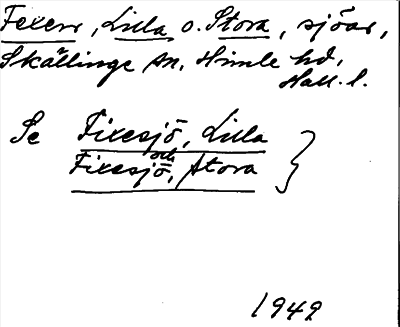 Fexen, Lilla o. Stora, sjöar,
Skällinge sn. Himle hd,
Hall. l.
Se Fixesjö, Lilla
och
Fixesjö, Stora }
1949